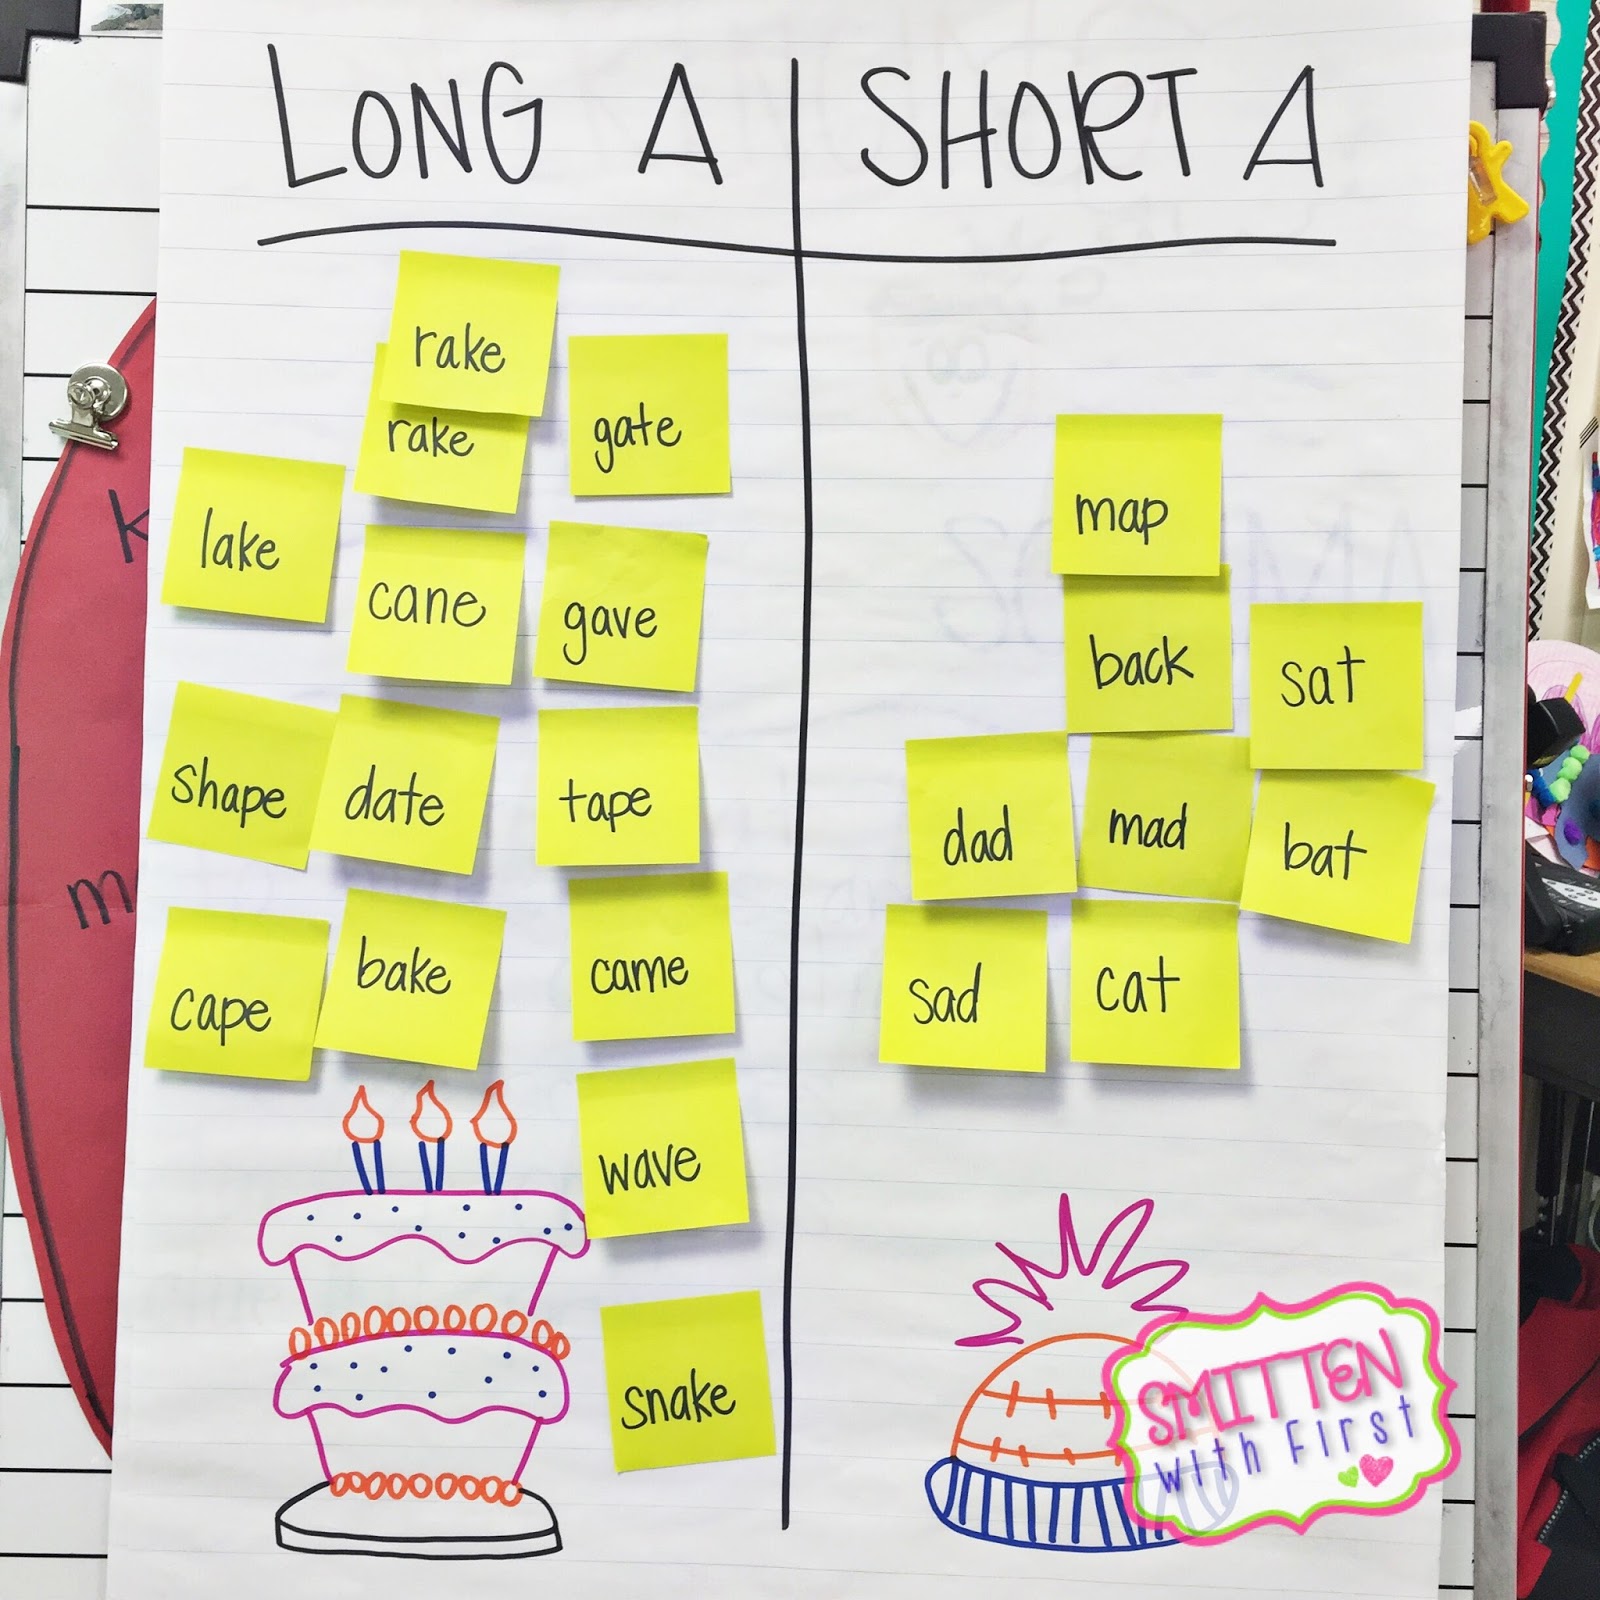 LONG A
SHORT A
rake
rake
gate
lake
cane
gave
shape
date
tape
cape
bake
came
wave
snake
map
back
sat
dad
mad
bat
sad
cat
k
m
SMITTEN
with First